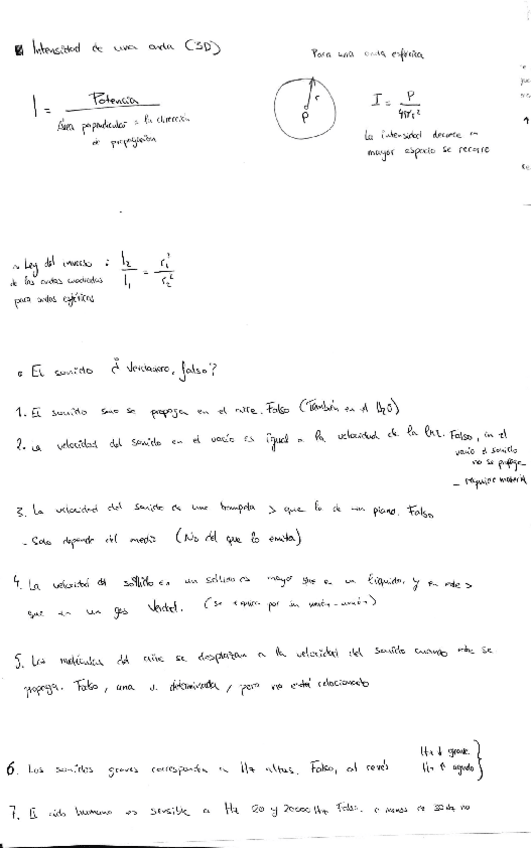 Intensidad de una onda (3D)
Para una onda esférica
I = Potencia
Área perpendicular a la dirección
de propagación
r
P
I = P / 4πr²
La intensidad decrece
mayor espacio se recorre
Ley del inverso : I₂ / I₁ = r₁² / r₂²
de las ondas cuadradas
para ondas esféricas
El sonido ¿ Verdadero, falso?
1. El sonido solo se propaga en el aire. Falso (También en el H₂O)
2. La velocidad del sonido en el vacío es igual a la velocidad de la luz. Falso, en el
vacío el sonido
no se propaga
- requiere material
3. La velocidad del sonido de una trompeta > que la de un piano. Falso
- Solo depende del medio (No del que lo emita)
4. La velocidad del sonido en un sólido es mayor que en un líquido, y en este >
que en un gas Verdad. (se por su)
5. Las moléculas del aire se desplazan a la velocidad del sonido cuando este se
propaga. Falso, una v. determinada, pero no está relacionado
6. Los sonidos graves corresponden a Hz altas. Falso, al revés
Hz ↓ grave
Hz ↑ agudo
7. El oído humano es sensible a Hz 20 y 20000 Hz Falso. a menos de 30 Hz no